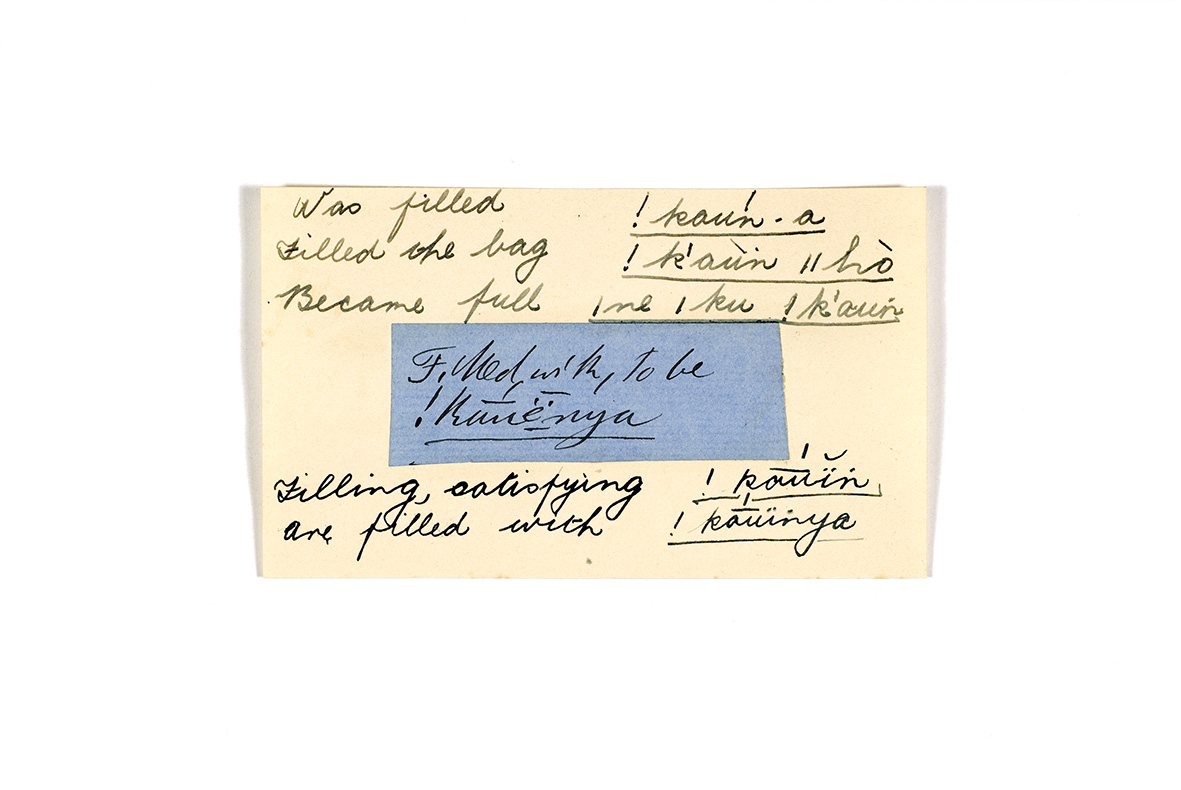 Was filled !kauṅ-a
Filled the bag !k'aùṅ ǁhò
Became full ǀne ǀku !k'auṅ
Filled with, to be
!kāūënya
Filling, satisfying !kāŭïṅ
are filled with !kāūïnya